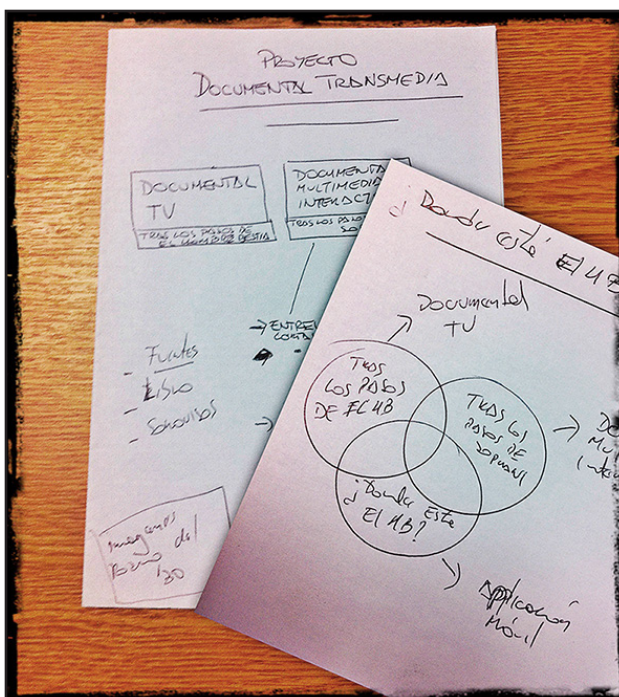 PROYECTO
DOCUMENTAL TRANSMEDIA
DOCUMENTAL
TV
TRAS LOS PASOS DE
EL HOMBRE BESTIA
DOCUMENTA
MULTIMEDIA
INTERACTI
TRAS LOS PASOS
→ ENTRE
- FUENTES
- LIBRO
Imagenes
del
¿Donde está El HB
Documental
TV
TRAS
LOS PASOS
DE EL HB
TRAS LOS
PASOS DE
¿Donde Este
El HB?
Do
Mul
Inte
Aplicación
Móvil